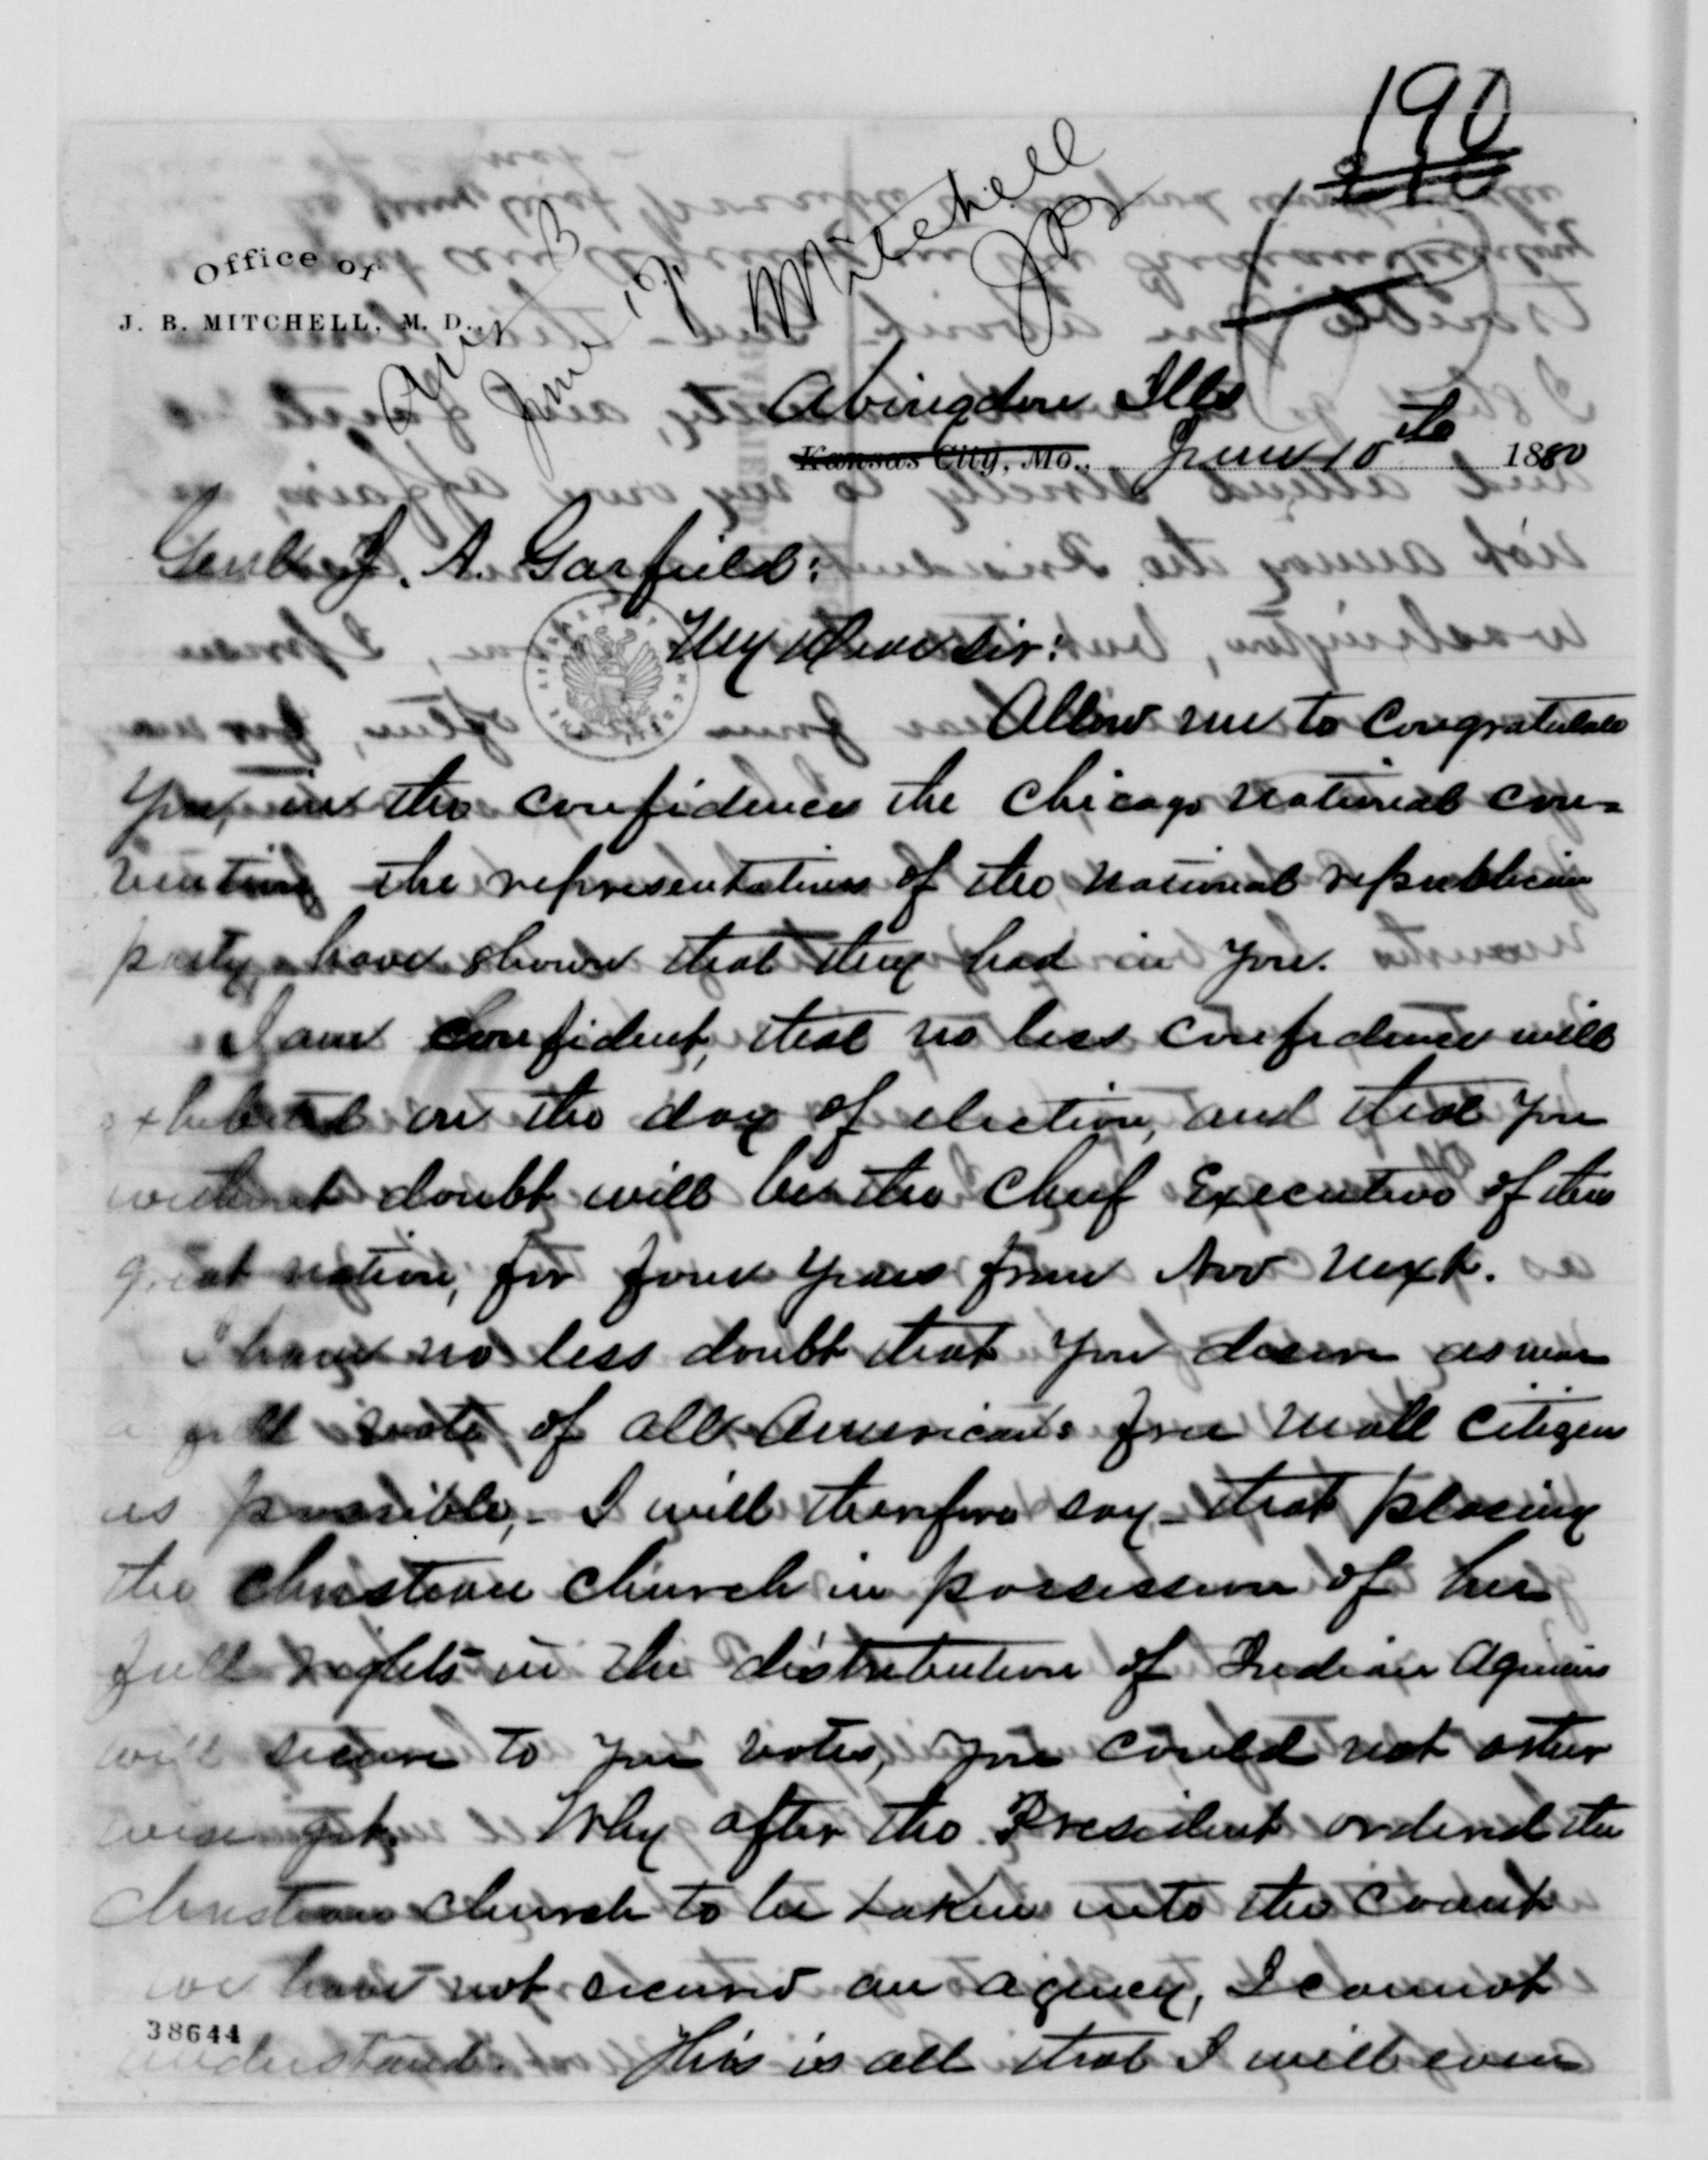 190
Mitchell
J B
Ansd
June 17
Office of
J. B. MITCHELL, M. D.,
Abingdon Ills
Kansas City, Mo., June 10th 1880
Genl J. A. Garfield:
My dear sir:
Allow me to Congratulate
you, in the confidence the Chicago National Con-
vention the representatives of the National republican
party, have shown that they had in you.
I am Confident, that no less confidence will
exhibited on the day of election, and that you
without doubt will be the Chief Executive of this
great nation, for four years from Nov next.
I have no less doubt that you desire as near
a full vote of all Americans free mall Citizens
as possible,- I will therefore say - that placing
the Christian Church in possession of her
full rights in the distribution of Indian Agencies
will secure to you votes, you could not other
wise get. Why after the President ordered the
Christian Church to be taken into the count
we have not secured an agency, I cannot
understand. This is all that I will even
38644